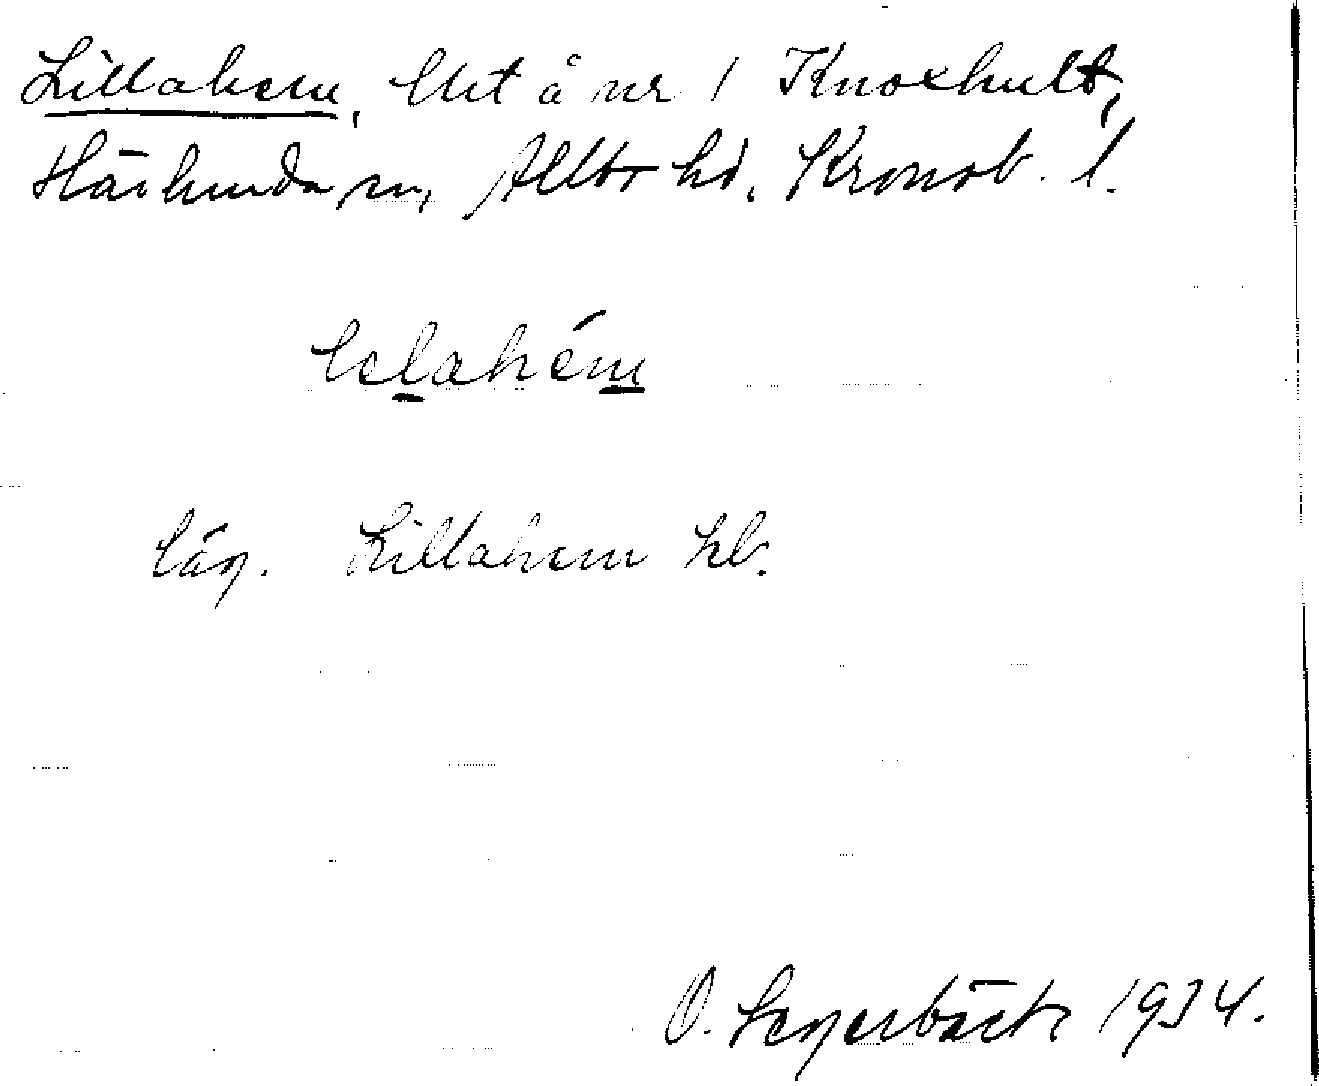 Lillahem, lht å nr 1 Knoxhult,
Härlunda sn, Allbo hd. Kronob. l.
lelahém
läg. Lillahem hb.
O. Segerbäck 1934.